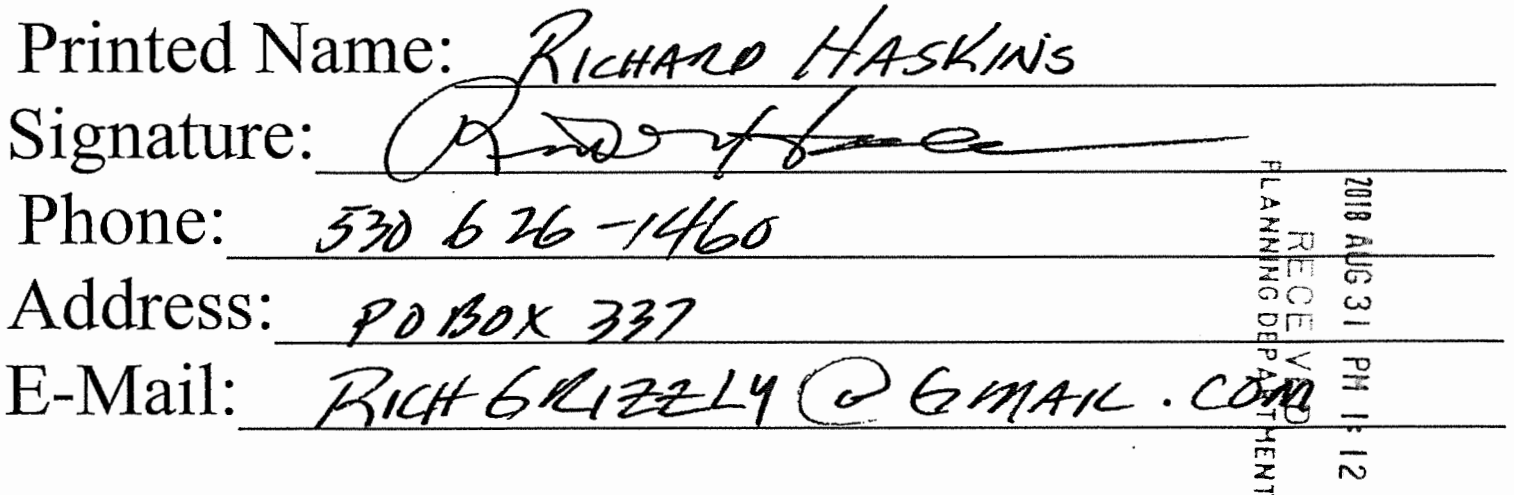 Printed Name: RICHARD HASKINS
Signature:
Phone: 530 626-1460
Address: PO BOX 337
E-Mail: RICHGRIZZLY@GMAIL.COM
2018 AUG 31 PM 1:12
RECEIVED
PLANNING DEPARTMENT